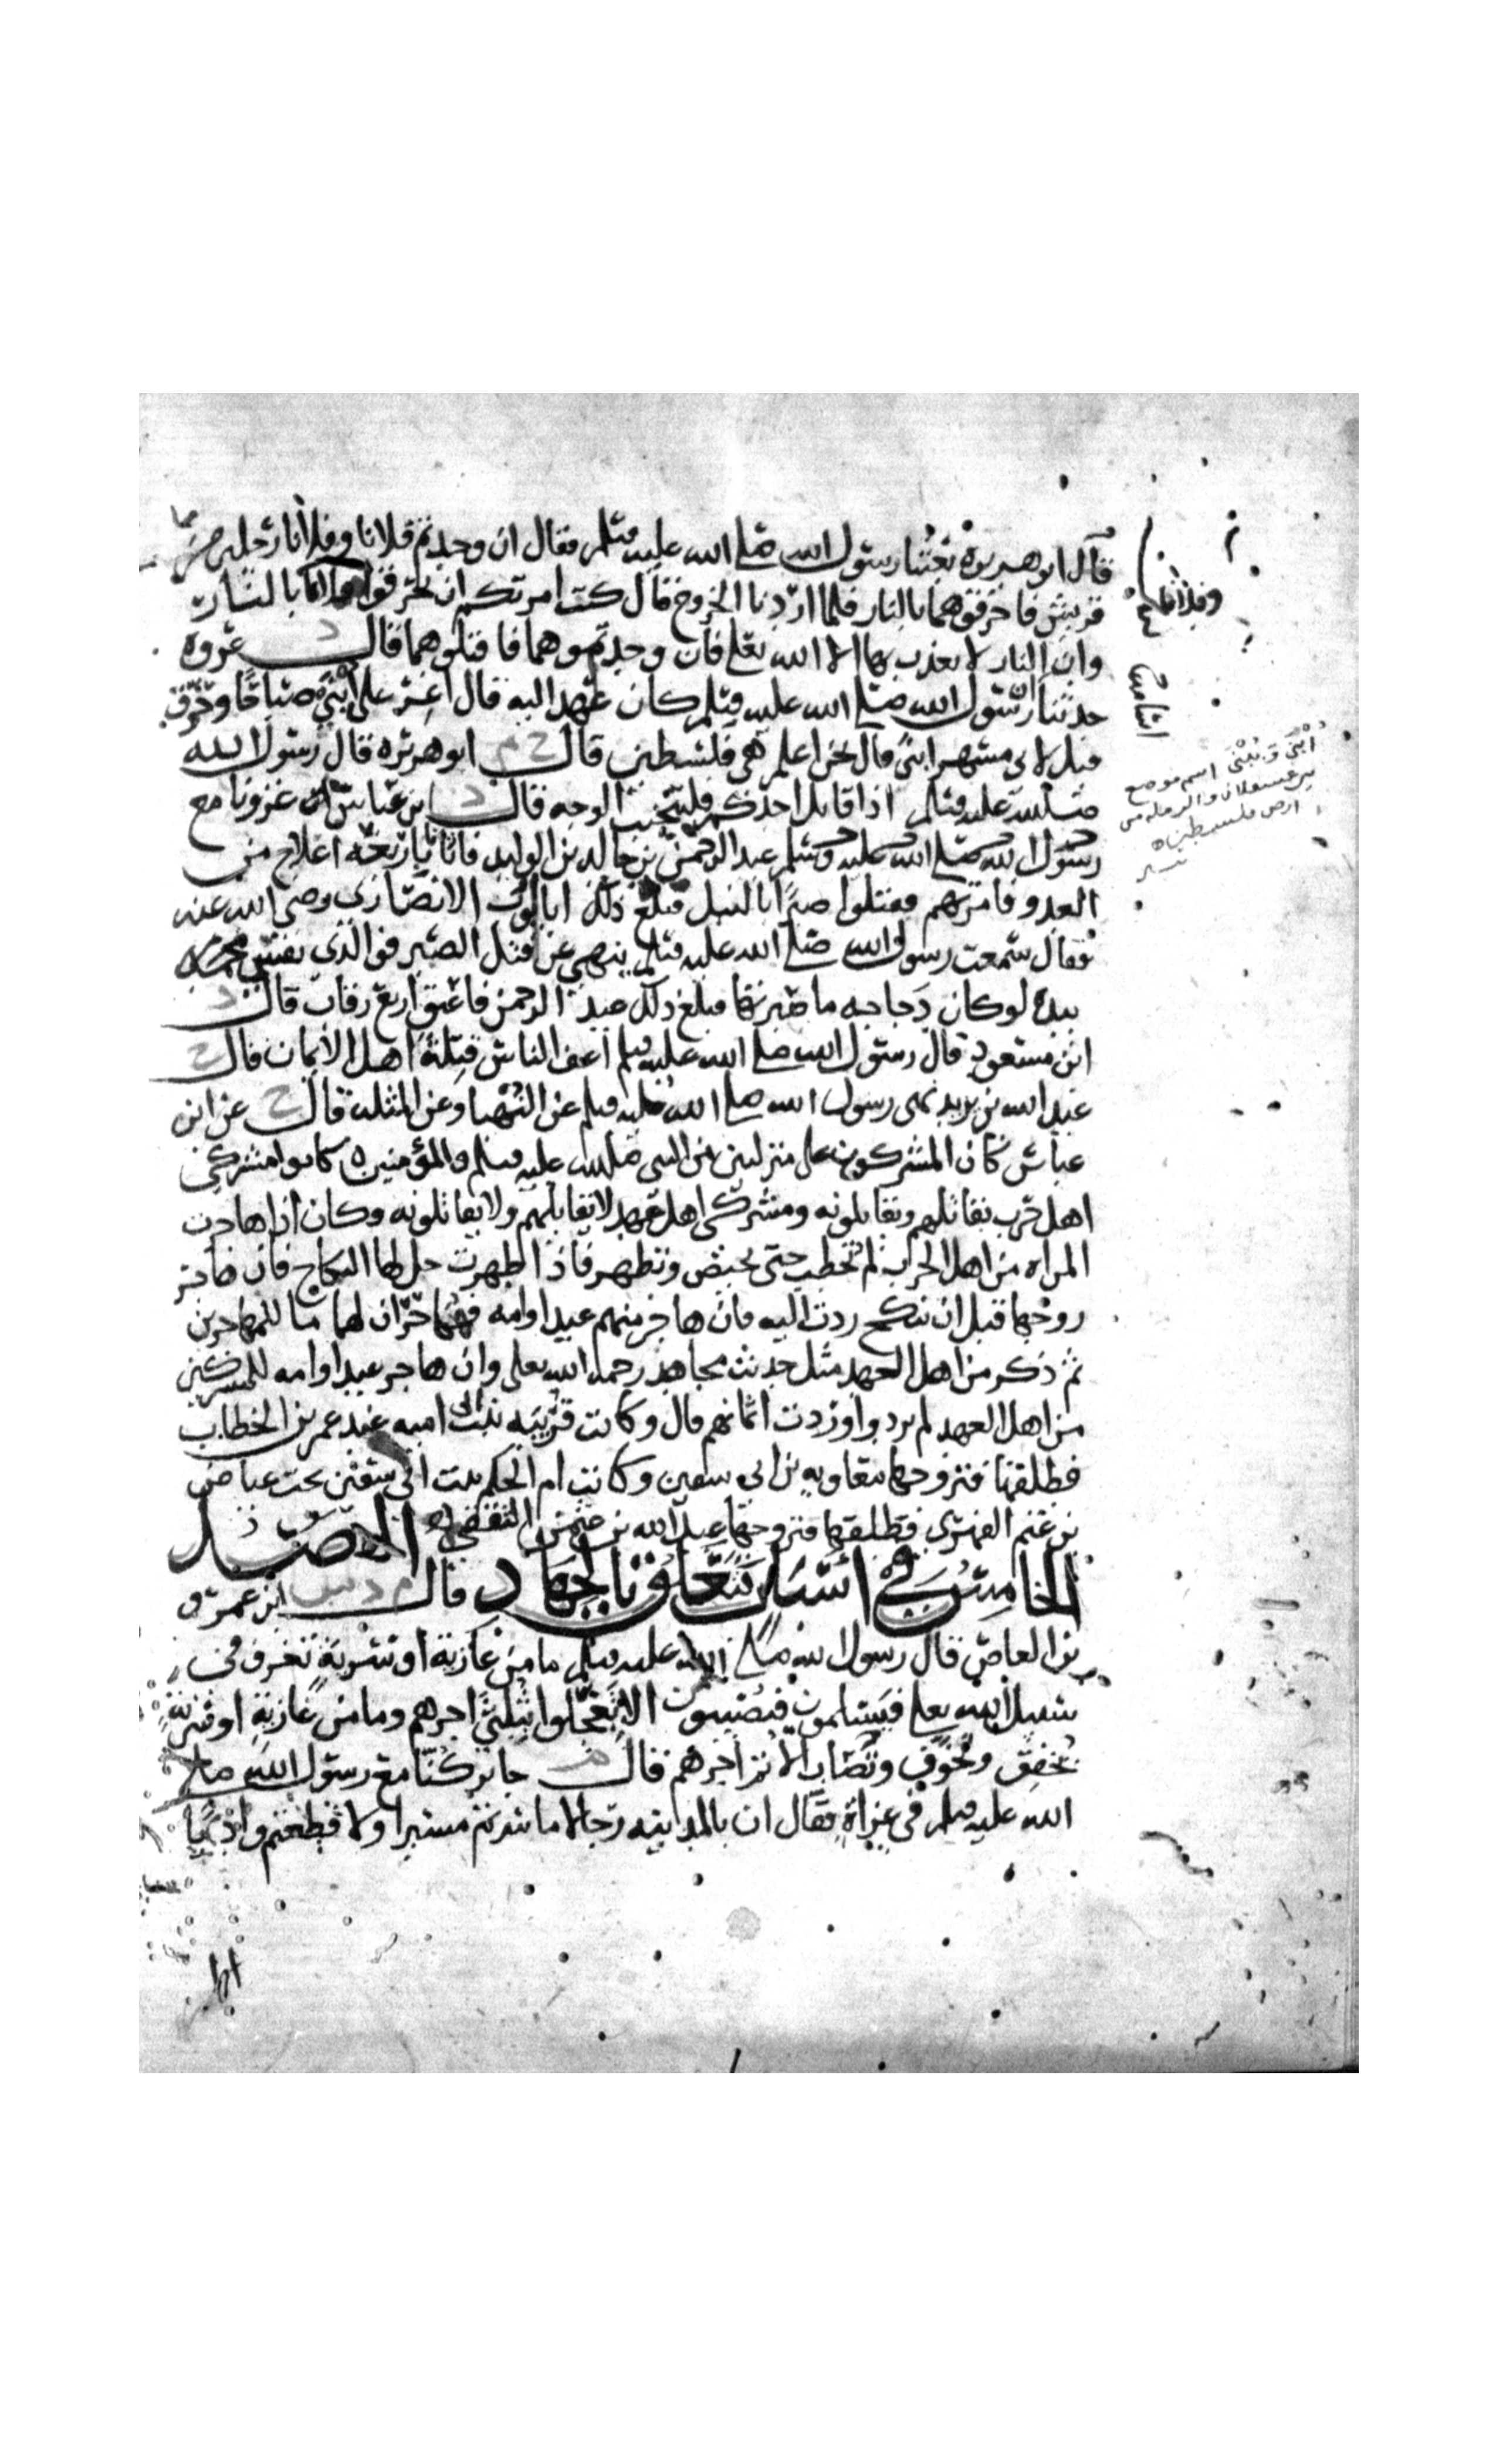 قال ابو هريرة بعثنا رسول الله صلى الله عليه وسلم فقال ان وجدتم فلانا وفلانا رجلين من
قريش فاحرقوهما بالنار فلما اردنا الخروج قال كنت امرتكم ان تحرقوا فلانا بالنار
وان النار لا يعذب بها الا الله تعلى فان وجدتموهما فاقتلوهما قال د عروه
حدثنا ان رسول الله صلى الله عليه وسلم كان عهد اليه قال اغر على ابنى صباحا وحرق
قيل لابي مسهر ابنى قال نحن اعلم هي فلسطين قال خ م ابو هريره قال رسول الله
صلى الله عليه وسلم اذا قاتل احدكم فليجتنب الوجه قال د ابن عباس غزونا مع
رسول الله صلى الله عليه وسلم عبد الرحمن بن خالد بن الوليد فاتى باربعه اعلاج من
العدو فامر بهم فقتلوا صبرا بالنبل فبلغ ذلك ابا ايوب الانصاري رضي الله عنه
فقال سمعت رسول الله صلى الله عليه وسلم ينهى عن قتل الصبر فوالذي نفسي
بيده لو كان دجاجه ما صبرتها فبلغ ذلك عبد الرحمن فاعتق اربع رقاب قال د
ابن مسعود قال رسول الله صلى الله عليه وسلم اعف الناس قتلة اهل الايمان قال خ
عبد الله بن يزيد نهى رسول الله صلى الله عليه وسلم عن النهبا وعن المثله قال خ عن ابن
عباس كان المشركون على منزلتين من النبي صلى الله عليه وسلم والمؤمنين ه كانوا مشركي
اهل حرب يقاتلهم ويقاتلونه ومشركي اهل عهد لا يقاتلهم ولا يقاتلونه وكان اذا هاجرت
المراه من اهل الحرب لم تخطب حتى تحيض وتطهر فاذا طهرت حل لها النكاح فان هاجر
زوجها قبل ان تنكح ردت اليه فان هاجر منهم عبد او امه فهما حران لهما ما للمهاجرين
ثم ذكر من اهل العهد مثل حديث مجاهد رحمه الله تعلى وان هاجر عبد او امه للمشركين
من اهل العهد لم يردوا وردت اثمانهم قال وكانت قريبه بنت ابي اميه عند عمر بن الخطاب
فطلقها فتزوجها معاويه بن ابي سفين وكانت ام الحكم بنت ابي سفين تحت عياض
بن غنم الفهري فطلقها فتزوجها عبد الله بن عثمن الثقفي ه الفصل
الخامس في اسباب تتعلق بالجهاد قال م د س ابن عمرو
بن العاص قال رسول الله صلى الله عليه وسلم ما من غازية او سرية تغزو في
سبيل الله تعلى فيسلمون فيصيبون الا تعجلوا ثلثي اجرهم وما من غازية او سرية
تخفق وتخوف وتصاب الا تم اجرهم قال م جابر كنا مع رسول الله صلى
الله عليه وسلم في غزاة فقال ان بالمدينه رجالا ما سرتم مسيرا ولا قطعتم واديا
وفلانا
ابنى و يبنى اسم موضع
بين عسقلان والرمله من
ارض فلسطين ه